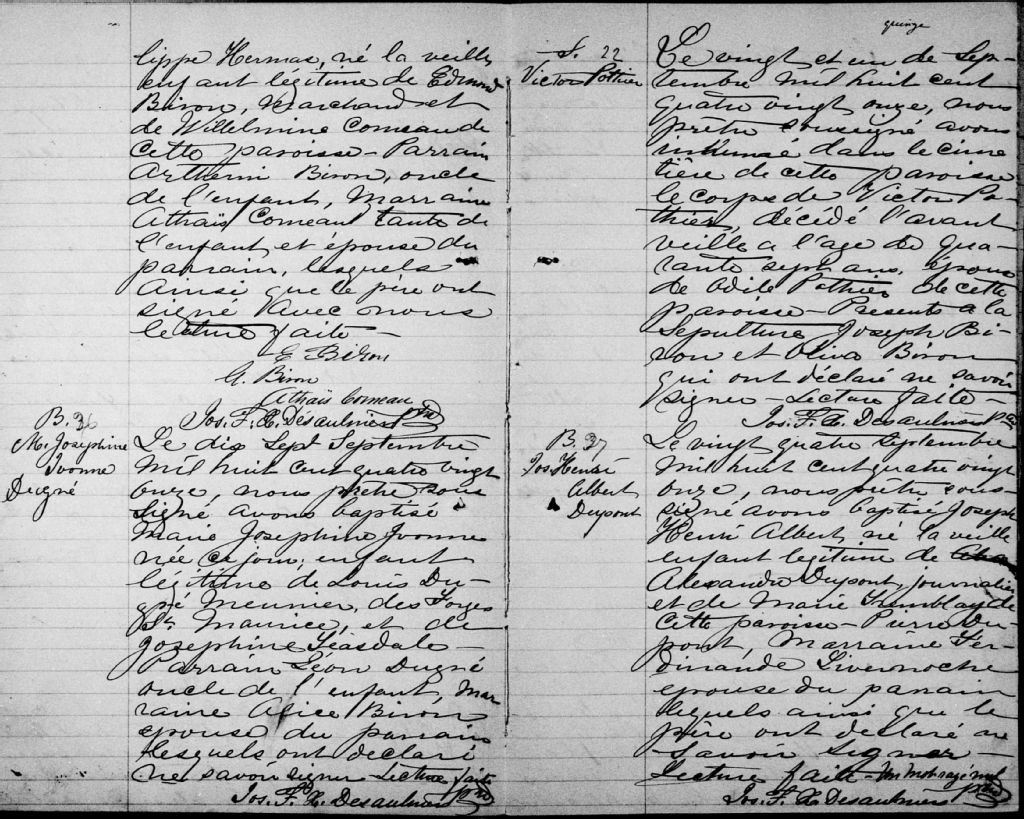 lippe Hermas, né la veille
enfant legitime de Edmond
Biron, Marchand et
de Willelmine Comeau de
cette paroisse - Parrain
Arthemi Biron, oncle
de l'enfant, Marraine
Athaïs Comeau tante de
l'enfant et épouse du
parrain, lesquels
ainsi que le père ont
signé avec nous
lecture faite -
E Biron
A. Biron
Athaïs Comeau
Jos. F. X. Desaulniers Ptre
B. 36
M. Josephine
Ivonne
Dugné
Le dix sept Septembre
mil huit cent quatre vingt
onze, nous prêtre sous
signé avons baptisé
Marie Josephine Ivonne
née ce jour, enfant
légitime de Louis Du-
gné Meunier, des Forges
St. Maurice, et de
Josephine Teasdale -
Parrain Léon Dugné
oncle de l'enfant, Mar
raine Alice Biron
epouse du parrain
lesquels ont declaré
ne savoir signer Lecture faite
Jos. F. X. Desaulniers Ptre
quinze
S. 22
Victor Pothier
Le vingt et un de Sep-
tembre mil huit cent
quatre vingt onze, nous
prêtre soussigné avons
inhumé dans le cime
tière de cette paroisse
le corps de Victor Po-
thier, décédé l'avant
veille a l'age de qua-
rante sept ans, époux
de Odile Pothier de cette
paroisse - Presents a la
Sepulture Joseph Bi-
ron et Oliva Biron
qui ont déclaré ne savoir
signer - Lecture faite -
Jos. F. X. Desaulniers Ptre
B. 37
Jos. Henri
Albert
Dupont
Le vingt quatre Septembre
mil huit cent quatre vingt
onze, nous prêtre sous-
signé avons baptisé Joseph
Henri Albert, né la veille
enfant legitime de
Alexandre Dupont, journalier
et de Marie Tremblay de
cette paroisse - Pierre Du-
pont, Marraine Fer-
dinande Livernoche
epouse du parrain
lequels ainsi que le
père ont déclaré ne
savoir signer -
Lecture faite - Un mot rayé nul
Jos. F. X. Desaulniers Ptre